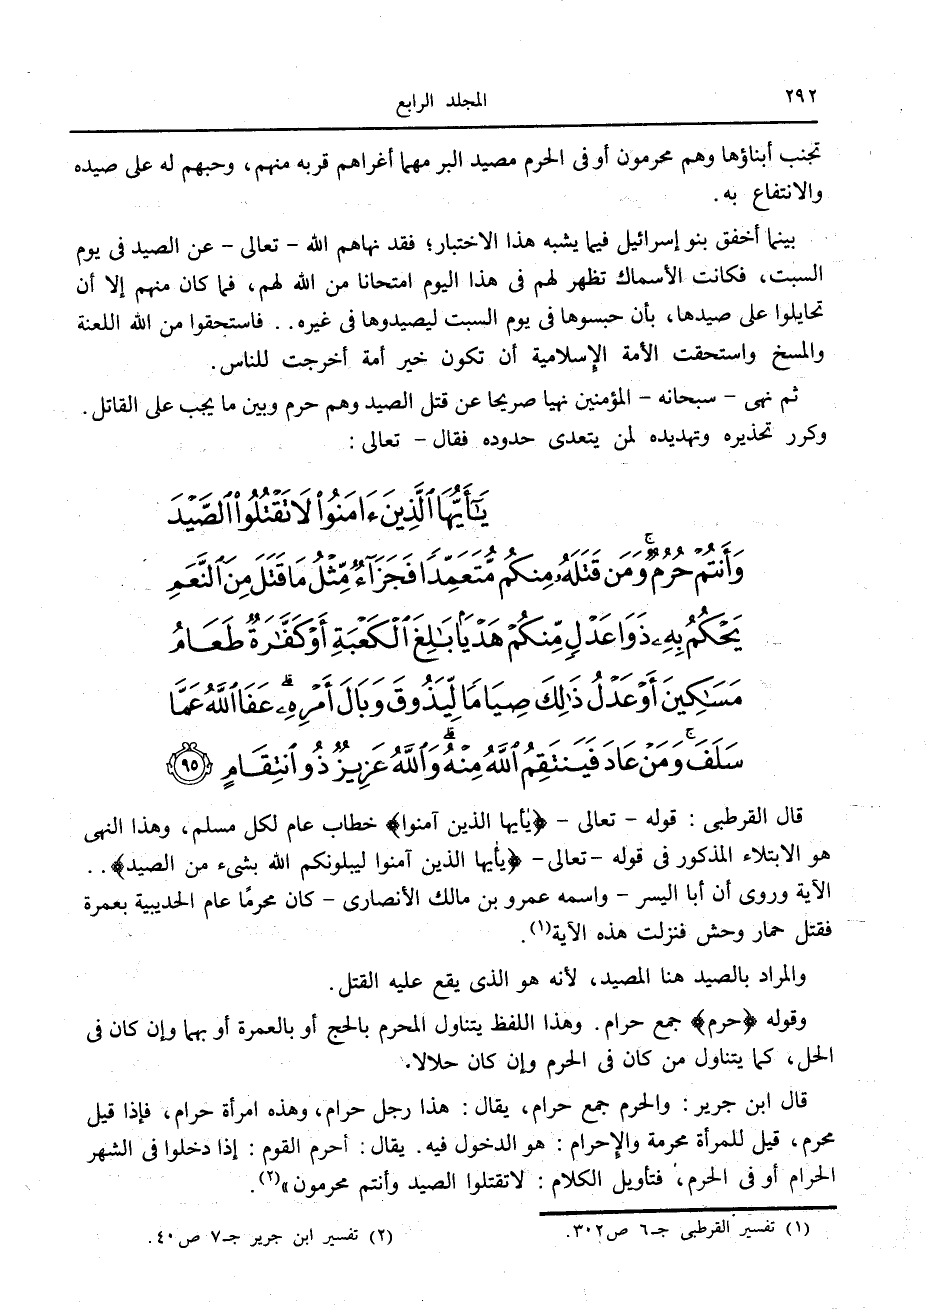 ٢٩٢
المجلد الرابع
تجنب أبناؤها وهم محرمون أو فى الحرم مصيد البر مهما أغراهم قربه منهم، وحبهم له على صيده
والانتفاع به.
بينما أخفق بنو إسرائيل فيما يشبه هذا الاختبار؛ فقد نهاهم الله - تعالى - عن الصيد فى يوم
السبت، فكانت الأسماك تظهر لهم فى هذا اليوم امتحانا من الله لهم، فما كان منهم إلا أن
تحايلوا على صيدها، بأن حبسوها فى يوم السبت ليصيدوها فى غيره.. فاستحقوا من الله اللعنة
والمسخ واستحقت الأمة الإسلامية أن تكون خير أمة أخرجت للناس.
ثم نهى - سبحانه - المؤمنين نهيا صريحا عن قتل الصيد وهم حرم وبين ما يجب على القاتل.
وكرر تحذيره وتهديده لمن يتعدى حدوده فقال - تعالى :
يَٰٓأَيُّهَا ٱلَّذِينَ ءَامَنُوا۟ لَا تَقْتُلُوا۟ ٱلصَّيْدَ
وَأَنتُمْ حُرُمٌ ۚ وَمَن قَتَلَهُۥ مِنكُم مُّتَعَمِّدًا فَجَزَآءٌ مِّثْلُ مَا قَتَلَ مِنَ ٱلنَّعَمِ
يَحْكُمُ بِهِۦ ذَوَا عَدْلٍ مِّنكُمْ هَدْيًۢا بَٰلِغَ ٱلْكَعْبَةِ أَوْ كَفَّٰرَةٌ طَعَامُ
مَسَٰكِينَ أَوْ عَدْلُ ذَٰلِكَ صِيَامًا لِّيَذُوقَ وَبَالَ أَمْرِهِۦ ۗ عَفَا ٱللَّهُ عَمَّا
سَلَفَ ۚ وَمَنْ عَادَ فَيَنتَقِمُ ٱللَّهُ مِنْهُ ۗ وَٱللَّهُ عَزِيزٌ ذُو ٱنتِقَامٍ ٩٥
قال القرطبى : قوله - تعالى - ﴿يأيها الذين آمنوا﴾ خطاب عام لكل مسلم، وهذا النهى
هو الابتلاء المذكور فى قوله -تعالى- ﴿يأيها الذين آمنوا ليبلونكم الله بشىء من الصيد﴾..
الآية وروى أن أبا اليسر - واسمه عمرو بن مالك الأنصارى - كان محرمًا عام الحديبية بعمرة
فقتل حمار وحش فنزلت هذه الآية(١).
والمراد بالصيد هنا المصيد، لأنه هو الذى يقع عليه القتل.
وقوله ﴿حرم﴾ جمع حرام. وهذا اللفظ يتناول المحرم بالحج أو بالعمرة أو بهما وإن كان فى
الحل، كما يتناول من كان فى الحرم وإن كان حلالا.
قال ابن جرير : والحرم جمع حرام، يقال : هذا رجل حرام، وهذه امرأة حرام، فإذا قيل
محرم، قيل للمرأة محرمة والإحرام : هو الدخول فيه. يقال : أحرم القوم : إذا دخلوا فى الشهر
الحرام أو فى الحرم، فتأويل الكلام : لاتقتلوا الصيد وأنتم محرمون»(٢).
(١) تفسير القرطبى جـ٦ ص٣٠٢.
(٢) تفسير ابن جرير جـ٧ ص٤٠.